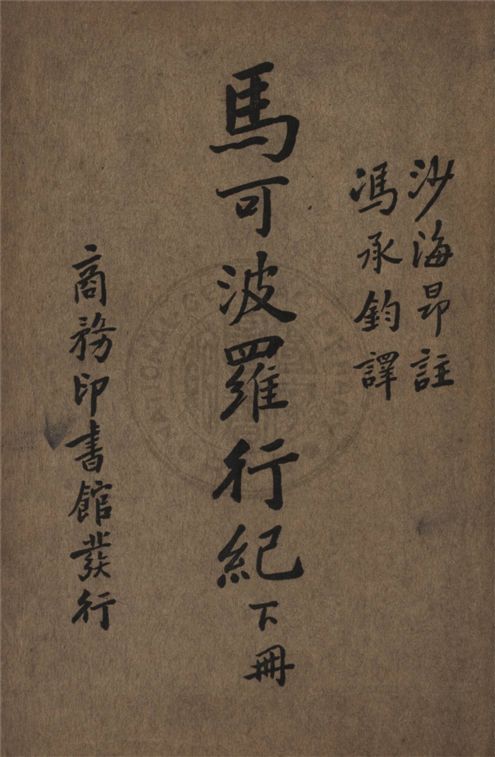 沙海昂註
馮承鈞譯
馬可波羅行紀 下冊
商務印書館發行